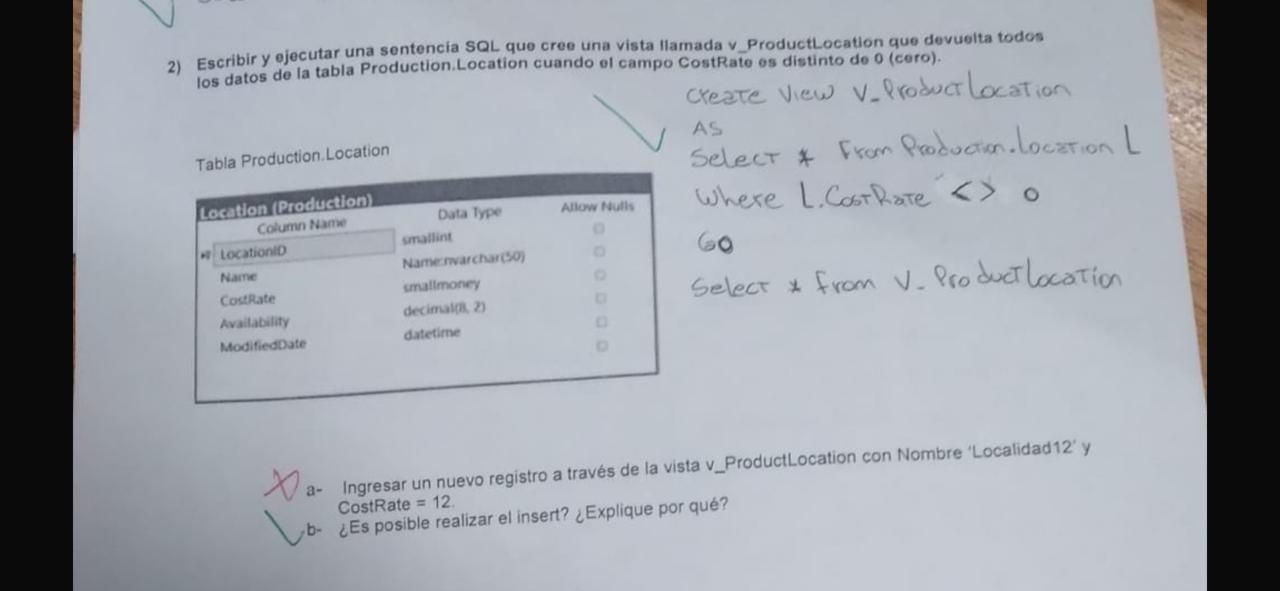 2) Escribir y ejecutar una sentencia SQL que cree una vista llamada v_ProductLocation que devuelta todos
los datos de la tabla Production.Location cuando el campo CostRate es distinto de 0 (cero).
Create View V_ProductLocation
AS
Select * From Production.Location L
Where L.CostRate <> 0
GO
Select * from V_ProductLocation
Tabla Production.Location
Location (Production)
Column Name Data Type Allow Nulls
LocationID smallint
Name Name:nvarchar(50)
CostRate smallmoney
Availability decimal(8, 2)
ModifiedDate datetime
a- Ingresar un nuevo registro a través de la vista v_ProductLocation con Nombre 'Localidad12' y
CostRate = 12.
b- ¿Es posible realizar el insert? ¿Explique por qué?